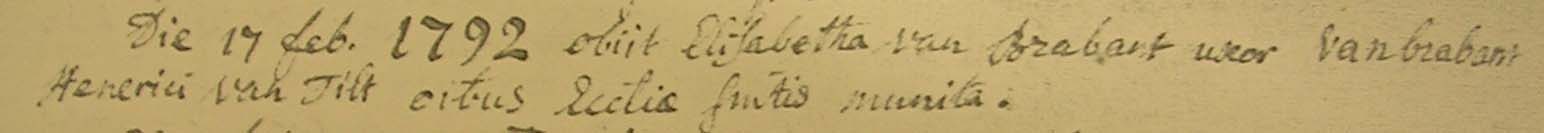 Die 17 feb. 1792 obiit Elisabetha van Brabant uxor Vanbrabant
Henerici van Tilt oibus Eccliæ smtis munita.